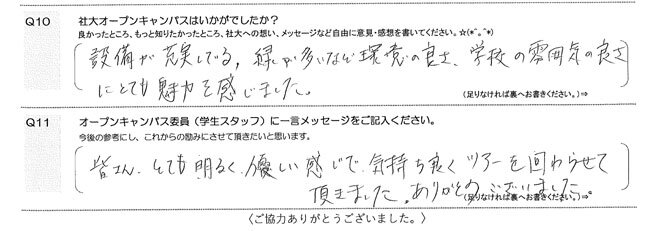 Q10 社大オープンキャンパスはいかがでしたか？
良かったところ、もっと知りたかったところ、社大への想い、メッセージなど自由に意見・感想を書いてください。☆(*^。^*)
設備が充実してる，緑が多いなど環境の良さ、学校の雰囲気の良さ
にとても魅力を感じました。
(足りなければ裏へお書きください。)⇒
Q11 オープンキャンパス委員（学生スタッフ）に一言メッセージをご記入ください。
今後の参考にし、これからの励みにさせて頂きたいと思います。
皆さん、とても明るく、優しい感じで、気持ち良くツアーを回わらせて
頂きました。ありがとうございました。
(足りなければ裏へお書きください。)⇒
〈ご協力ありがとうございました。〉